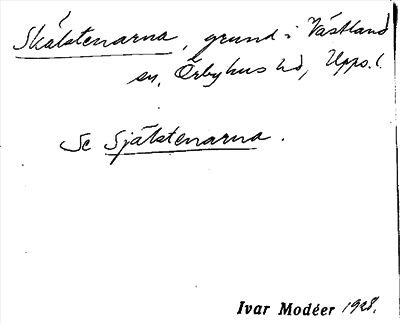 Skälstenarna, grund i Västland
sn, Örbyhus hd, Upps. l.
Se Själstenarna.
Ivar Modéer 1928.